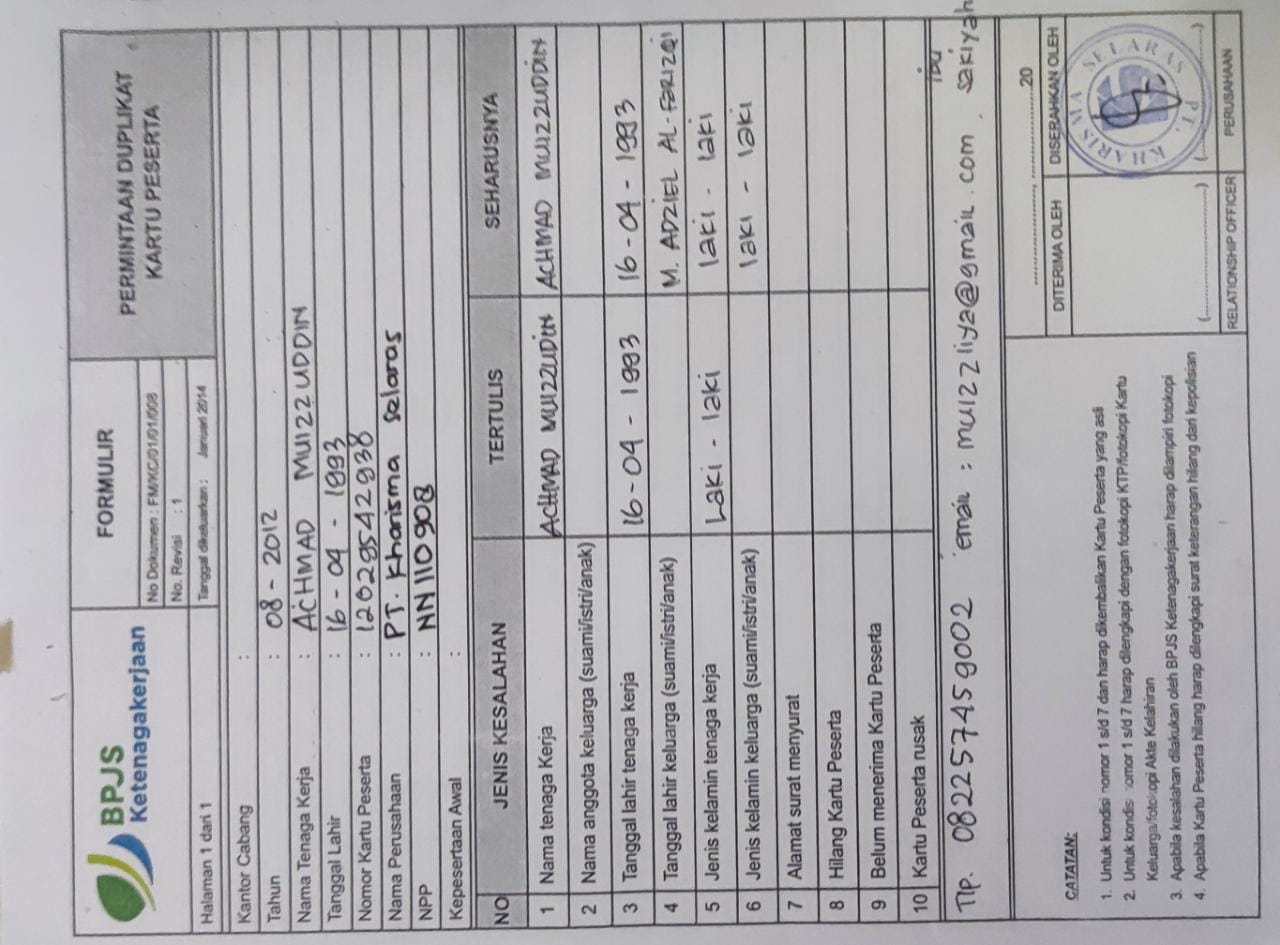 BPJS
Ketenagakerjaan
FORMULIR
PERMINTAAN DUPLIKAT
KARTU PESERTA
No Dokumen : FM/KC/01/01/008
No. Revisi : 1
Halaman 1 dari 1
Tanggal dikeluarkan : Januari 2014
Kantor Cabang :
Tahun : 08 - 2012
Nama Tenaga Kerja : ACHMAD MUIZZUDDIN
Tanggal Lahir : 16 - 04 - 1993
Nomor Kartu Peserta : 12029542938
Nama Perusahaan : PT. Kharisma Selaras
NPP : NN110908
Kepesertaan Awal :
NO JENIS KESALAHAN TERTULIS SEHARUSNYA
1 Nama tenaga Kerja ACHMAD MUIZZUDDIN ACHMAD MUIZZUDDIN
2 Nama anggota keluarga (suami/istri/anak)
3 Tanggal lahir tenaga kerja 16 - 04 - 1993 16 - 04 - 1993
4 Tanggal lahir keluarga (suami/istri/anak) M. ADZIEL AL-FARIZQI
5 Jenis kelamin tenaga kerja Laki - laki laki - laki
6 Jenis kelamin keluarga (suami/istri/anak) laki - laki
7 Alamat surat menyurat
8 Hilang Kartu Peserta
9 Belum menerima Kartu Peserta
10 Kartu Peserta rusak
Tlp. 082257459002 email : muizzliya@gmail.com . ibu sakiyah
CATATAN:
1. Untuk kondisi nomor 1 s/d 7 dan harap dikembalikan Kartu Peserta yang asli
2. Untuk kondisi nomor 1 s/d 7 harap dilengkapi dengan fotokopi KTP/fotokopi Kartu
Keluarga/fotokopi Akte Kelahiran
3. Apabila kesalahan dilakukan oleh BPJS Ketenagakerjaan harap dilampiri fotokopi
4. Apabila Kartu Peserta hilang harap dilengkapi surat keterangan hilang dari kepolisian
...................., ....................20
DITERIMA OLEH DISERAHKAN OLEH
PT. KHARISMA SELARAS
(....................) (....................)
RELATIONSHIP OFFICER PERUSAHAAN